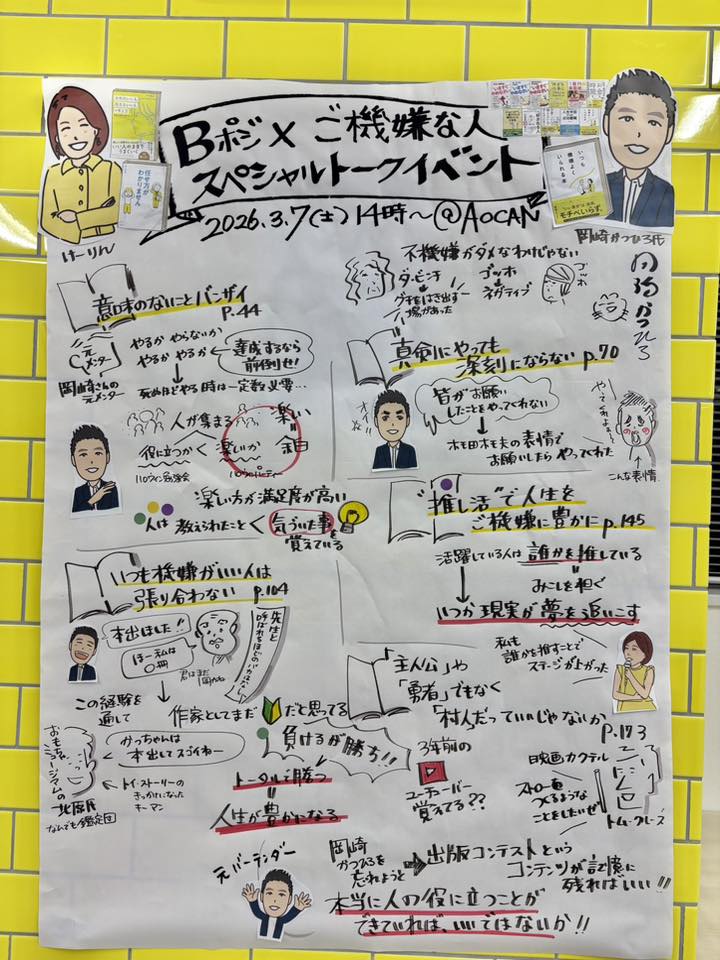 Bポジ×ご機嫌な人
スペシャルトークイベント
2026.3.7(土)14時〜@AOCAN
けーりん
任せ方が
わかりません
いつも
機嫌よく
いられる本
モチベいらず。
岡崎かつひろ氏
岡崎かつひろ
意味のないことバンザイ
P.44
元メンター
岡崎さんの
元メンター
やるか やらないか
やるか やるか
達成するなら
前倒せ!
死ぬほどやる時は一定数必要…
人が集まる
楽しい
役に立つか
楽しいか
ハロウィン勉強会
ハロウィンパーティー
楽しい方が満足度が高い
人は教えられたことく気づいた事を
覚えている
不機嫌がダメなわけじゃない
ダ・ビンチ
グチをはき出す
場があった
ゴッホ
ネガティブ
ゴッホ
真剣にやっても
深刻にならない P.70
オイ!!
皆がお願い
したことをやってくれない
ホモ田ホモ夫の表情で
お願いしたら やってくれた
やってくれよぉ〜
こんな表情
"推し活"で人生を
ご機嫌に豊かに P.145
活躍している人は 誰かを推している
みこしを担ぐ
いつか現実が夢を追いこす
私も
誰かを推すことで
ステージが上がった
いつも機嫌がいい人は
張り合わない P.104
本出しました!!
ほー私は
〇冊
君はまだ
先生と
呼ばれるほどのバカはなし
この経験を
通して
作家としてまだ
だと思ってる
おもちゃ
ミュージアムの
北原氏
なんでも鑑定団
かっちゃんは
本出してスゴイねー
トイ・ストーリーの
きっかけになった
キーマン
負けるが勝ち!!
トータルで勝つ
人生が豊かになる
「主人公」や
「勇者」でもなく
「村人だっていいじゃないか
P.173
3年前の
ユーチューバー
覚えてる??
映画カクテル
ストロー
つくるような
ことをしたいぜ
トム・クルーズ
元バーテンダー
岡崎
かつひろを
忘れようと
出版コンテストという
コンテンツが記憶に
残ればいい!!
本当に人の役に立つことが
できていれば、いいではないか!!